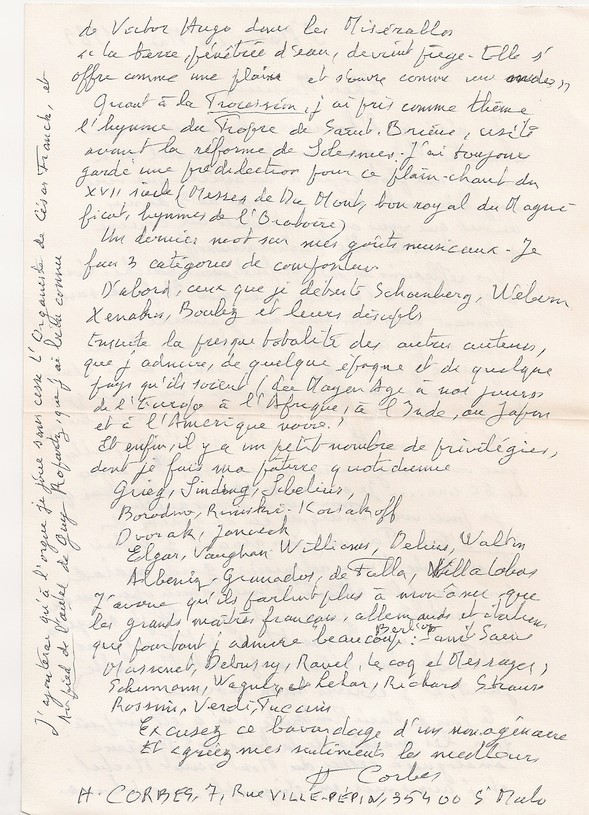 de Victor Hugo dans les Misérables
« la terre, pénétrée d'eau, devient piège - Elle s'
offre comme une plaine et s'ouvre comme une onde »
Quant à la Procession, j'ai pris comme thème
l'hymne du Propre de Saint. Brieuc, usité
avant la réforme de Solesmes. J'ai toujours
gardé une prédilection pour ce plain-chant du
XVII siècle (Messes de Du Mont, ton royal du Magni-
ficat, hymnes de l'Oratoire)
Un dernier mot sur mes goûts musicaux - Je
fais 3 catégories de compositeurs
D'abord, ceux que je déteste Schoenberg, Webern
Xenakis, Boulez et leurs disciples
Ensuite la presque totalité des autres auteurs,
que j'admire, de quelque époque et de quelque
pays qu'ils soient (du Moyen Age à nos jours
de l'Europe à l'Afrique, à l'Inde, au Japon
et à l'Amérique noire!
Et enfin, il y a un petit nombre de privilégiés,
dont je fais ma pâture quotidienne
Grieg, Sinding, Sibelius,
Borodine, Rimski-Korsakoff
Dvorak, Janacek
Elgar, Vaughan Williams, Delius, Walton
Albeniz, Granados, de Falla, Villa Lobos
J'avoue qu'ils parlent plus à mon âme que
les grands maîtres français, allemands et italiens
que pourtant j'admire beaucoup: Berlioz Saint Saëns
Massenet, Debussy, Ravel, Lecoq et Messager,
Schumann, Wagner et Lehar, Richard Strauss
Rossini, Verdi, Puccini
Excusez ce bavardage d'un nonagénaire
Et agréez mes sentiments les meilleurs
H Corbes
H. CORBES, 7, Rue VILLE-PÉPIN, 35400 St Malo
J'ajouterai qu'à l'orgue je joue sans cesse L'Organiste de César Franck, et
Au pied de l'autel de Guy Ropartz, que j'ai bien connu